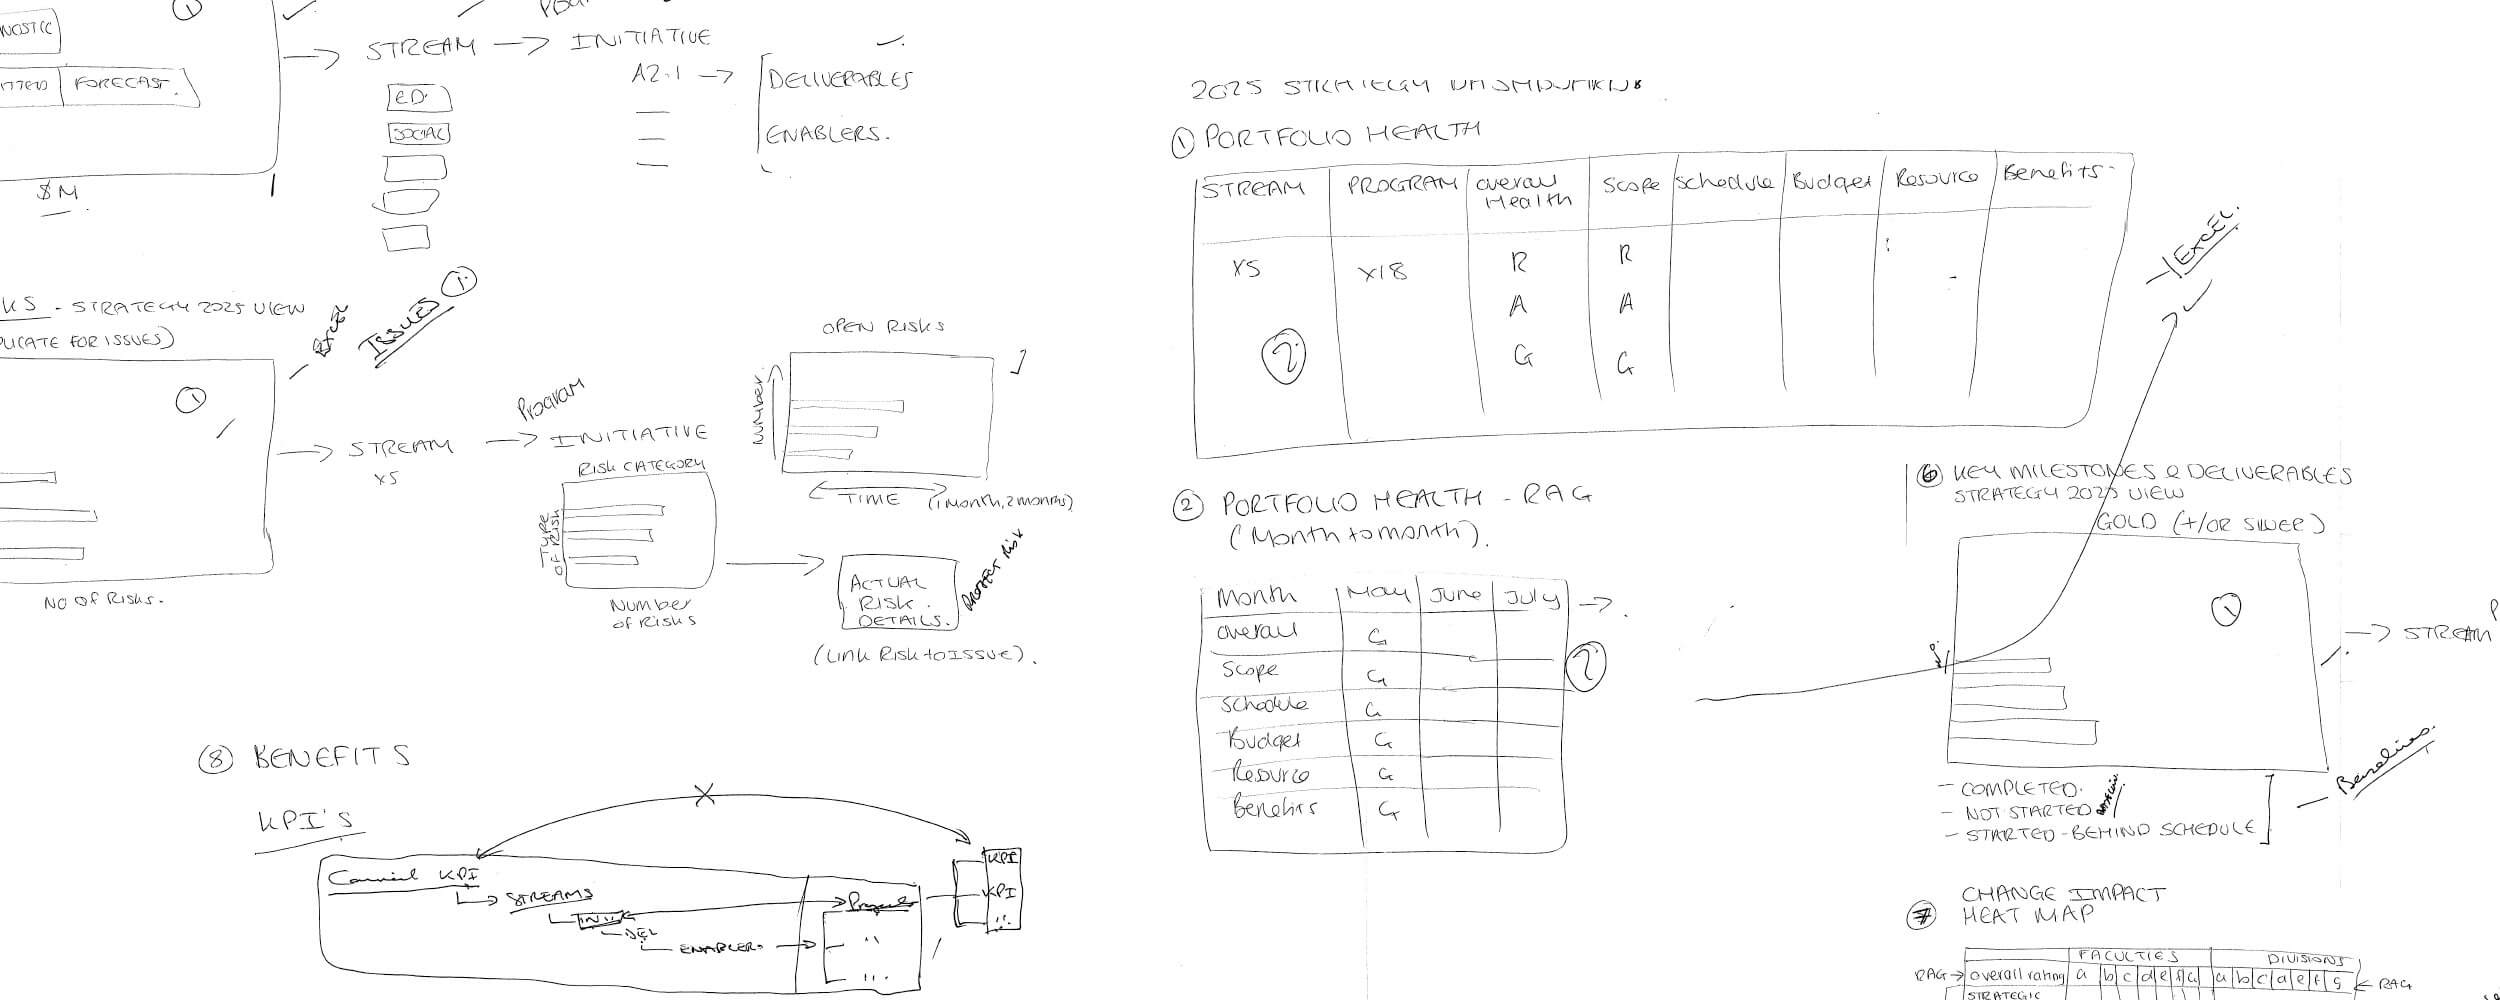 1
NOSTIC
FORECAST.
$M
STREAM → INITIATIVE
A2.1 →
DELIVERABLES
ENABLERS.
ED.
SOCIAL
KS - STRATEGY 2025 VIEW
PLICATE FOR ISSUES)
EXCEL
ISSUES 1.
1
NO OF RISKS.
STREAM → INITIATIVE
X5
Program
RISK CATEGORY
TYPE
OF RISK
NUMBER
OF RISKS
OPEN RISKS
NUMBER
TIME (1 MONTH, 2 MONTHS)
ACTUAL
RISK.
DETAILS.
PROJECT RISK
(LINK RISK TO ISSUE).
8 BENEFITS
KPI'S
Council KPI
STREAMS
INIT
DEL
ENABLERS
Projects
"
"
KPI
KPI
"
2025 STRATEGY DASHBOARDS
1 PORTFOLIO HEALTH
STREAM PROGRAM Overall Health Scope Schedule Budget Resource Benefits
X5 X18 R R
A A
G G
2.
EXCEL.
2 PORTFOLIO HEALTH - RAG
(Month to month).
Month May June July →
Overall G
Scope G
Schedule G
Budget G
Resource G
Benefits G
2
6 KEY MILESTONES & DELIVERABLES
STRATEGY 2025 VIEW
GOLD (+/OR SILVER)
1
→ STREAM
- COMPLETED.
- NOT STARTED
- STARTED - BEHIND SCHEDULE
Baselines.
7 CHANGE IMPACT
HEAT MAP
FACULTIES DIVISIONS
RAG → overall rating a b c d e f G a b c d e f g ← RAG
STRATEGIC